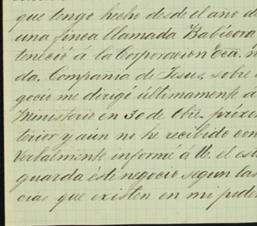 que tengo hecho desde el año de
una finca llamada Babicora
teneció á la Corporacion Ecca. n
da. Compania de Jesus, sobre
gocio me dirigí últimamente a
Ministerio en 30 de Obre. próxi
terior y aún no he recibido con
Verbalmente informé á U. el est
guarda éste negocio segun las
cias que existen en mi poder